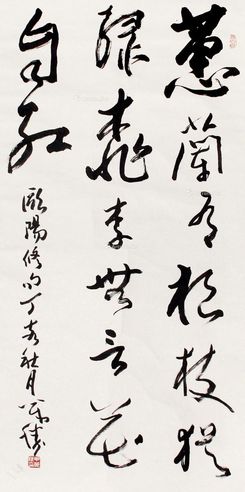 蕙蘭有恨枝猶
綠桃李無言花
自紅
歐陽修句丁亥秋月